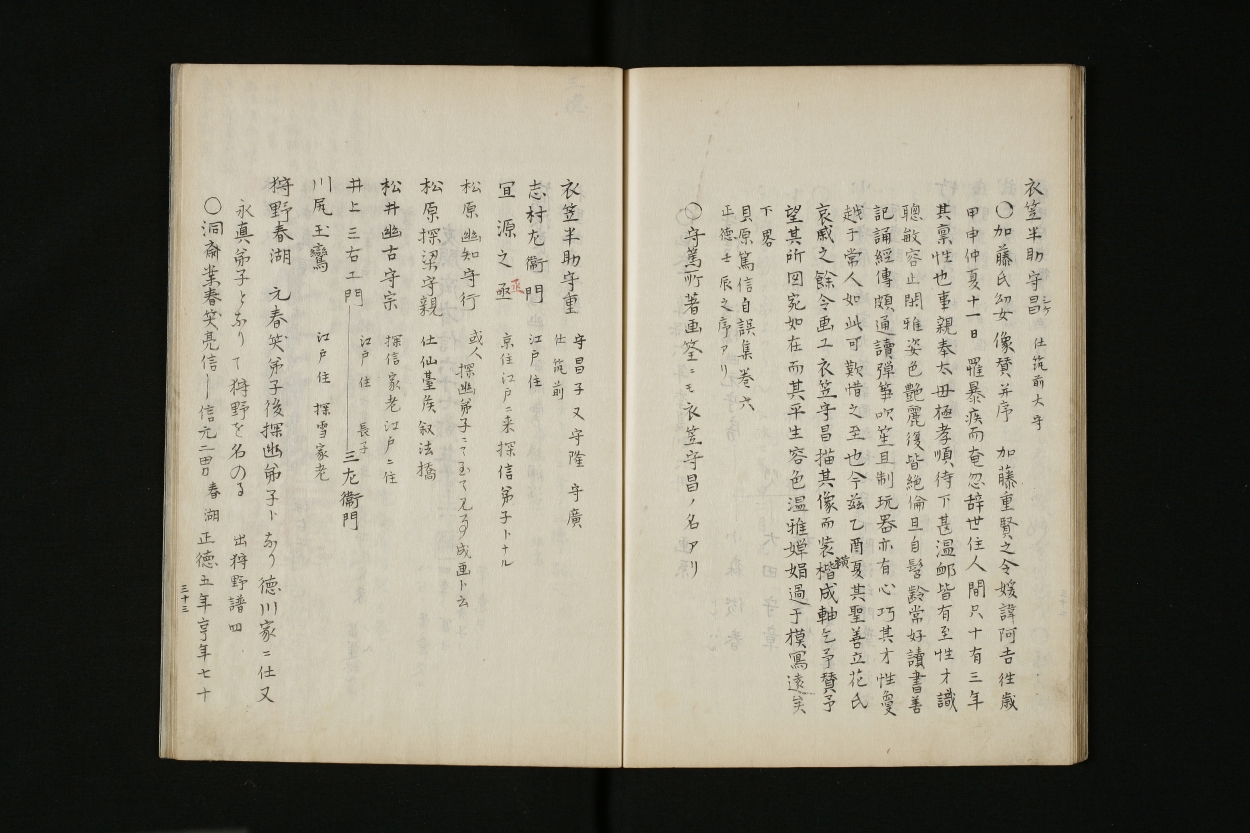 衣笠半助守昌 シケ 仕筑前太守
〇加藤氏幼女像賛并序 加藤重賢之令媛諱阿吉徃歳
甲申仲夏十一日罹暴疾而奄忽辞世住人間只十有三年
其禀性也事親奉太母極孝順待下甚温邺皆有至性才識
聰敏容止閑雅姿色艶麗復皆絶倫且自髫齡常好讀書善
記誦經傳頗通讀彈箏吹笙且制玩器亦有心巧其才性敻
越于常人如此可歎惜之至也今兹乙酉夏其聖善立花氏
哀戚之餘令画工衣笠守昌描其像而装横楷成軸乞予賛予
望其所図宛如在而其平生容色温雅嬋娟過于模寫遠矣
下畧
貝原篤信自誤集巻六
正德壬辰之序アリ
〇守篤所著画筌ニモ衣笠守昌ノ名アリ
衣笠半助守重 守昌子又守隆 守廣
仕筑前
志村左衛門 江戸住
冝源之丞 丞 京住江戸ニ来探信弟子トナル
松原幽知守行 或人探幽弟子ニて玉て見る成画ト云
松原探梁守親 仕仙臺侯叙法橋
松井幽古守宗 探信家老江戸ニ住
井上三右エ門 江戸住 長子三左衛門
川尻玉鸞 江戸住 探雪家老
狩野春湖 元春笑弟子後探幽弟子トなり德川家ニ仕又
永真弟子となりて狩野を名のる 出狩野譜四
〇洞斎業春笑亮信―信元二男 春湖 正徳五年享年七十
三十三